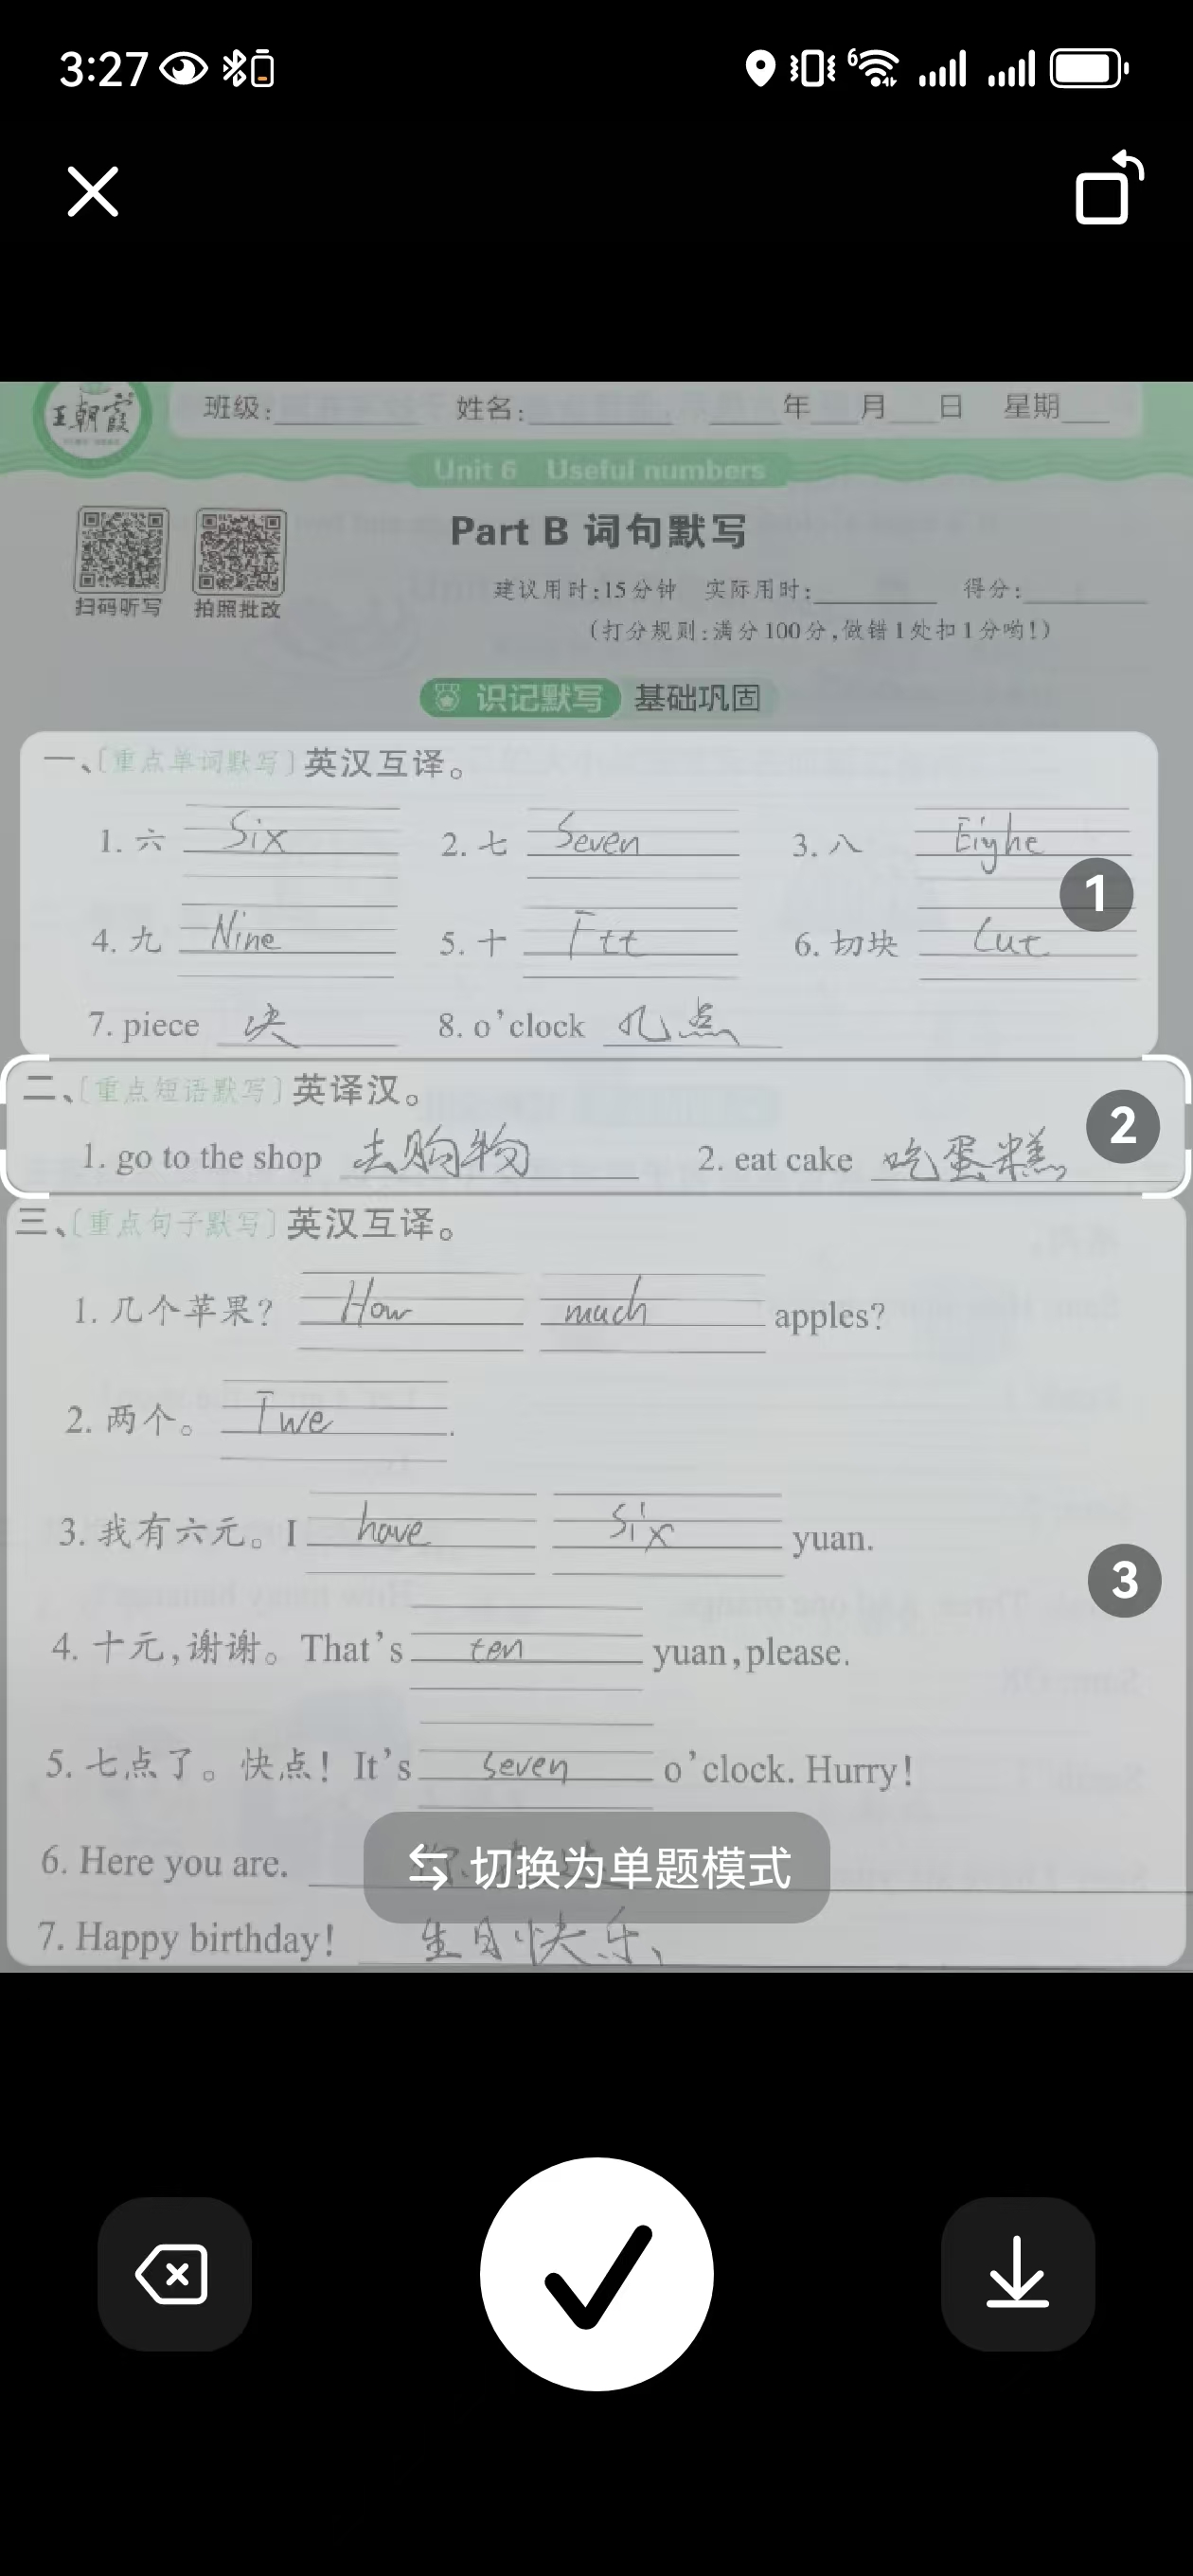 3:27
6
王朝霞 班级: 姓名: 年 月 日 星期
Unit 6 Useful numbers
Part B 词句默写
扫码听写 拍照批改
建议用时:15分钟 实际用时: 得分:
(打分规则:满分100分,做错1处扣1分哟!)
识记默写 基础巩固
一、[重点单词默写]英汉互译。
1. 六 Six 2. 七 Seven 3. 八 Eighe
1
4. 九 Nine 5. 十 Ttt 6. 切块 Cut
7. piece 块 8. o'clock 几点
二、[重点短语默写]英译汉。
2
1. go to the shop 去购物 2. eat cake 吃蛋糕
三、[重点句子默写]英汉互译。
1. 几个苹果? How much apples?
2. 两个。 Twe.
3. 我有六元。I have six yuan.
3
4. 十元,谢谢。That's ten yuan,please.
5. 七点了。快点! It's seven o'clock. Hurry!
6. Here you are.
切换为单题模式
7. Happy birthday! 生日快乐、